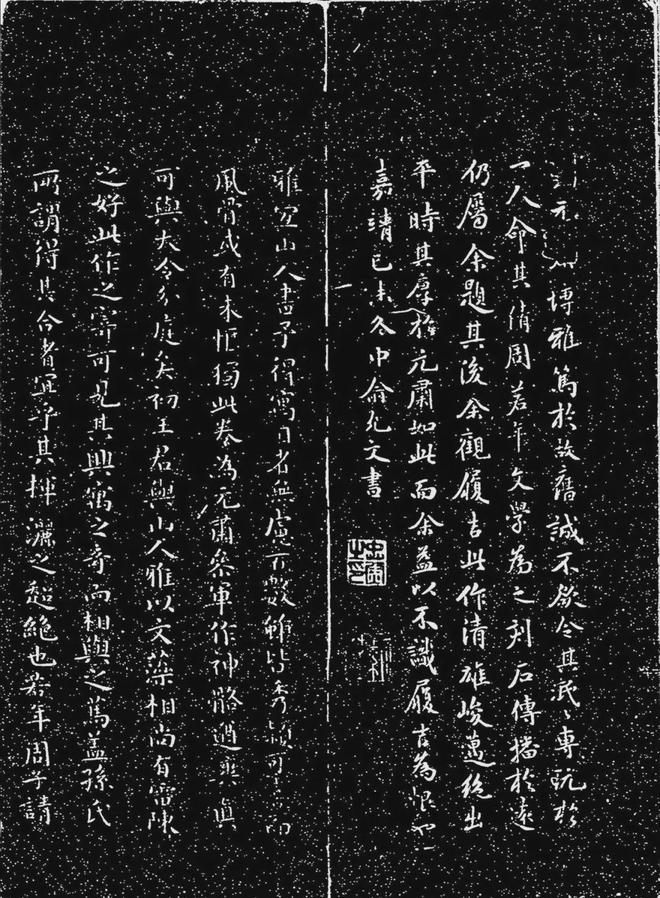 博雅篤於故舊誠不欲令其泯泯專玩於
一人命其倩周若年文學為之刻石傳播於遠
仍屬余題其後余觀履吉此作清雄峻邁絕出
平時其厚於元肅如此而余益以不識履吉為恨也
嘉靖己未冬中俞允文書
雅宜山人書予得寓目者無慮百數雖皆秀穎可喜而
風骨或有未恒獨此卷為元肅參軍作神骼遒爽真
可與大令分庭矣初王君與山人雅以文藻相尚有雷陳
之好此作之寄可見其興寓之奇而相與之篤蓋孫氏
所謂得其合者宜乎其揮灑之超絕也若年周子請